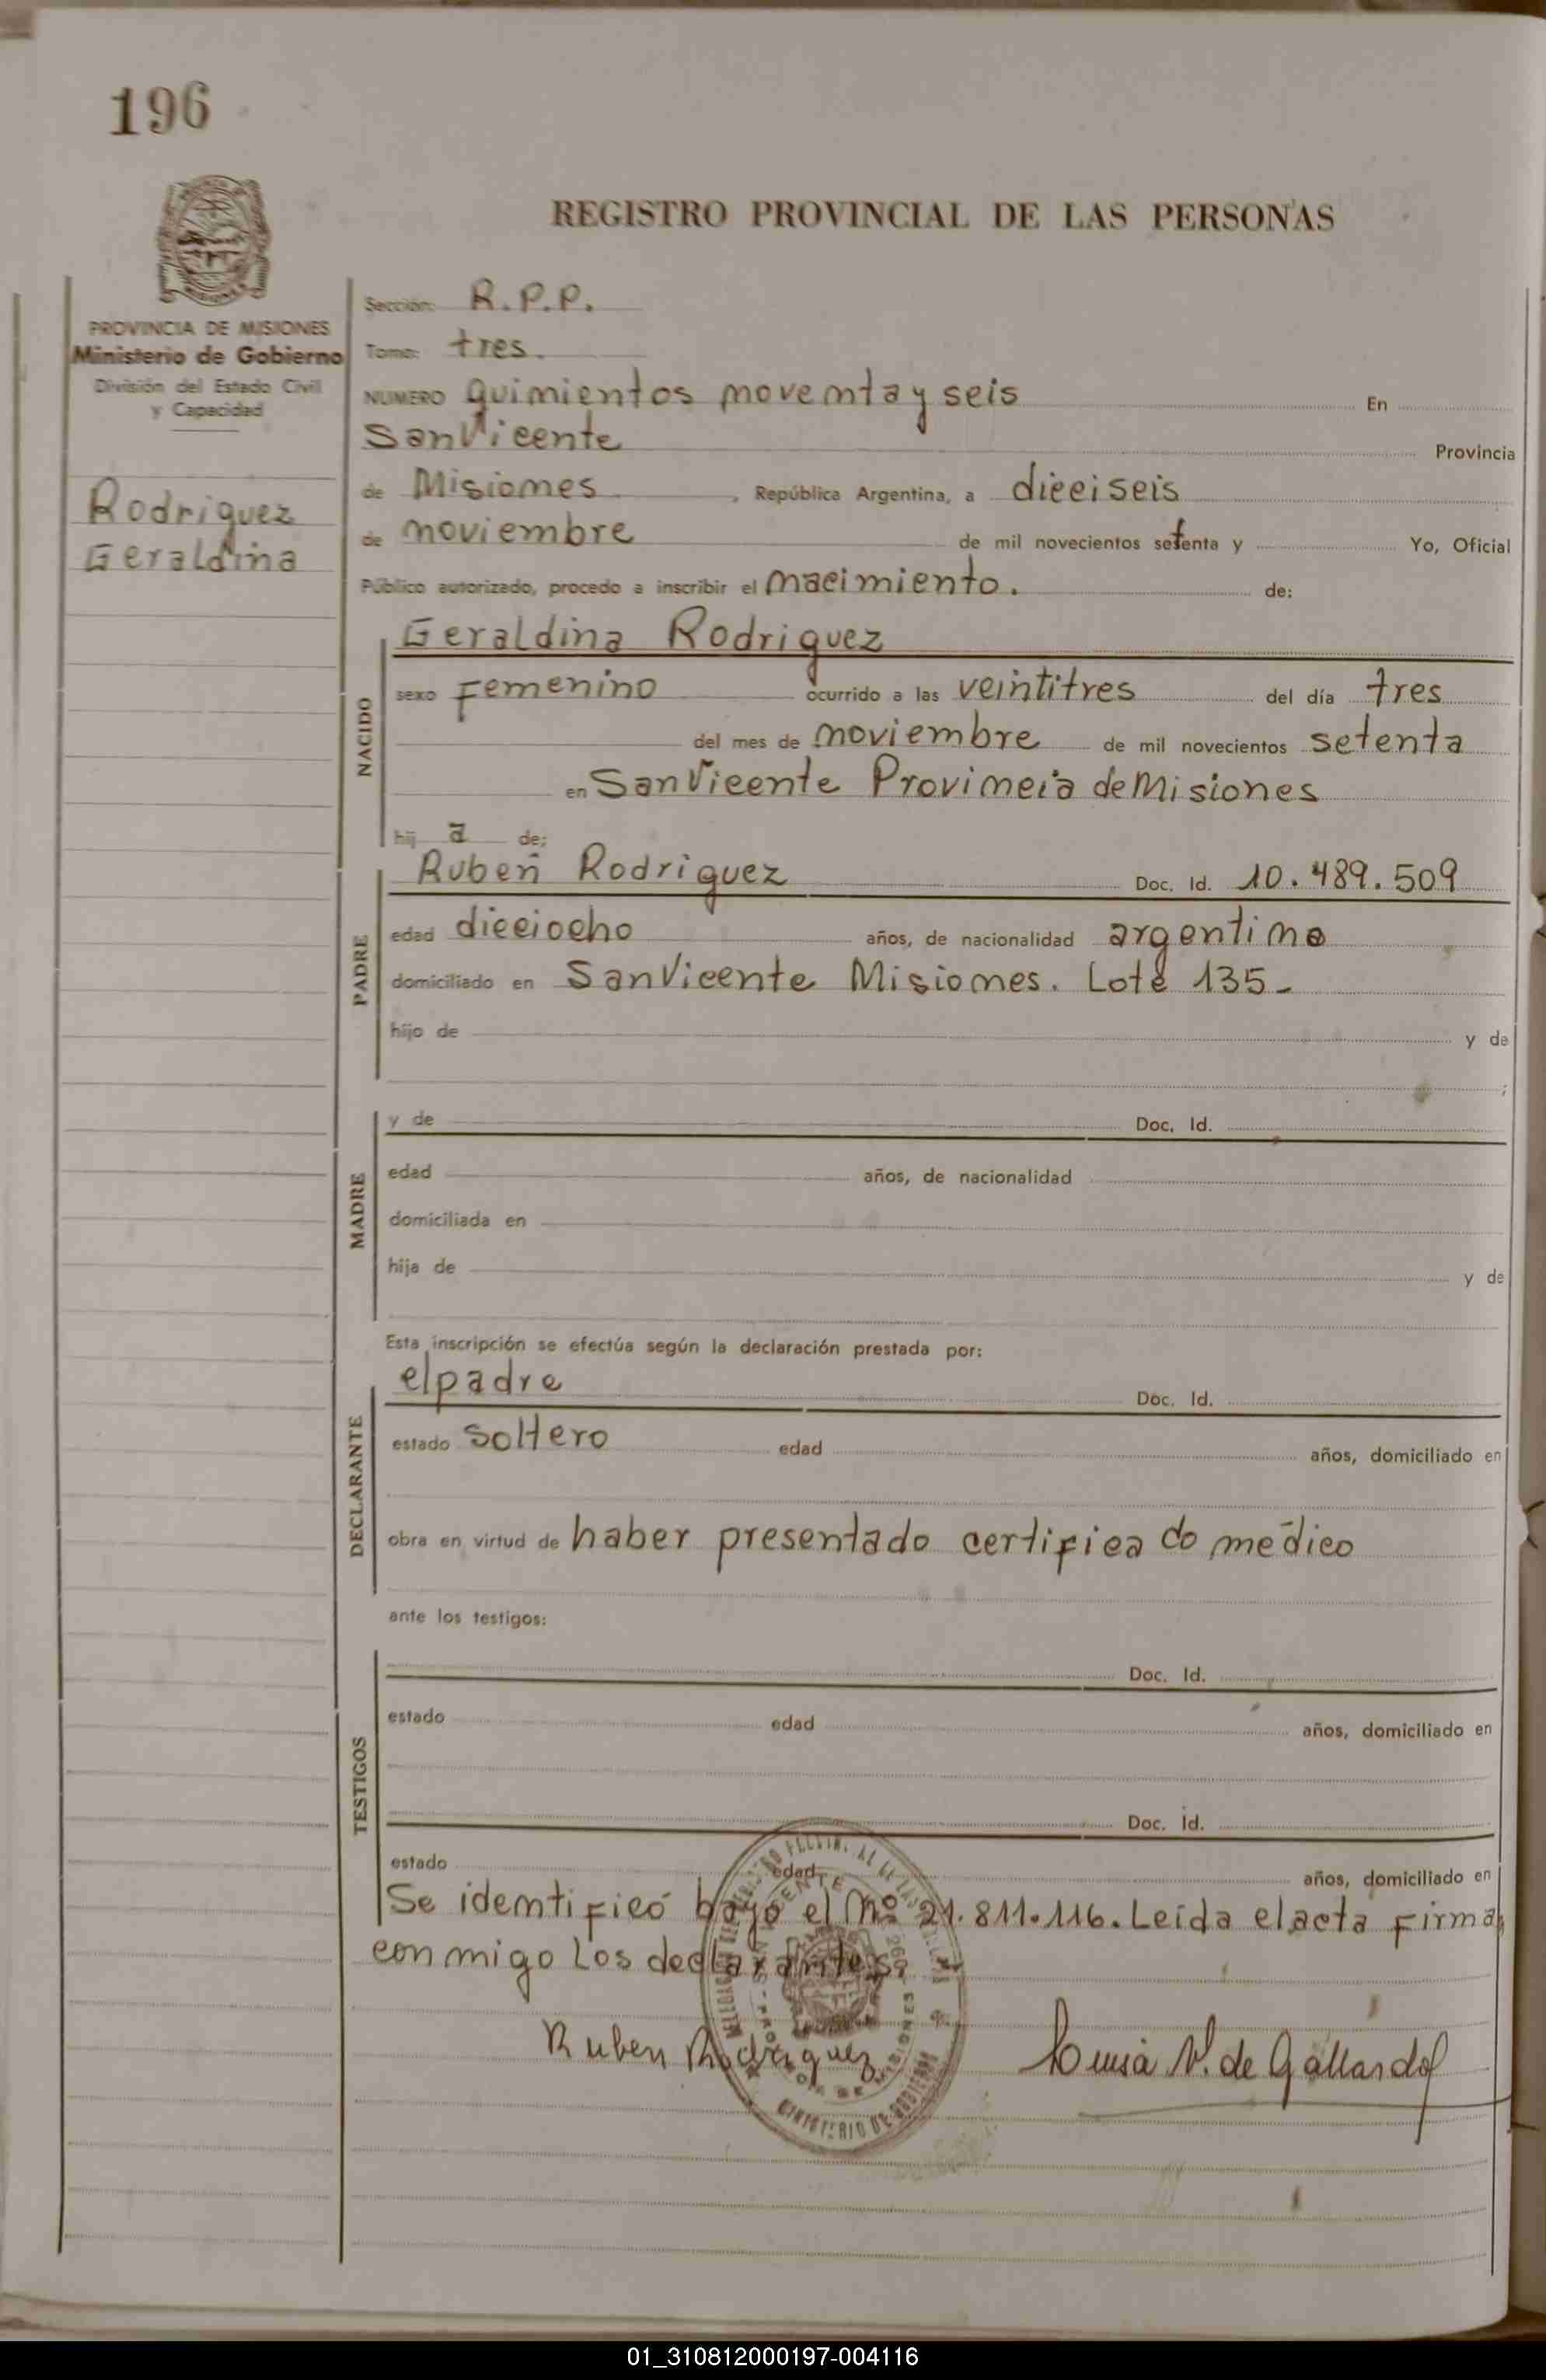 196
REGISTRO PROVINCIAL DE LAS PERSONAS
PROVINCIA DE MISIONES
Ministerio de Gobierno
División del Estado Civil
y Capacidad
Rodriguez
Geraldina
Sección: R.P.P.
Tomo: tres.
NUMERO quinientos noventa y seis En
San Vicente Provincia
de Misiones, República Argentina, a dieciseis
de noviembre de mil novecientos setenta y Yo, Oficial
Público autorizado, procedo a inscribir el nacimiento. de:
NACIDO
Geraldina Rodriguez
sexo Femenino ocurrido a las veintitres del día tres
del mes de noviembre de mil novecientos setenta
en San Vicente Provincia de Misiones
hij a de:
PADRE
Ruben Rodriguez Doc. Id. 10.489.509
edad dieciocho años, de nacionalidad argentino
domiciliado en San Vicente Misiones. Lote 135-
hijo de y de
;
MADRE
y de Doc. Id.
edad años, de nacionalidad
domiciliada en
hija de y de
Esta inscripción se efectúa según la declaración prestada por:
DECLARANTE
el padre Doc. Id.
estado soltero edad años, domiciliado en
obra en virtud de haber presentado certificado médico
ante los testigos:
TESTIGOS
Doc. Id.
estado edad años, domiciliado en
Doc. Id.
estado edad años, domiciliado en
Se identificó bajo el Nº 21.811.116. Leída el acta firma
conmigo los declarantes.
Ruben Rodriguez Luisa V. de Gallardo
MINISTERIO DE GOBIERNO
01_310812000197-004116